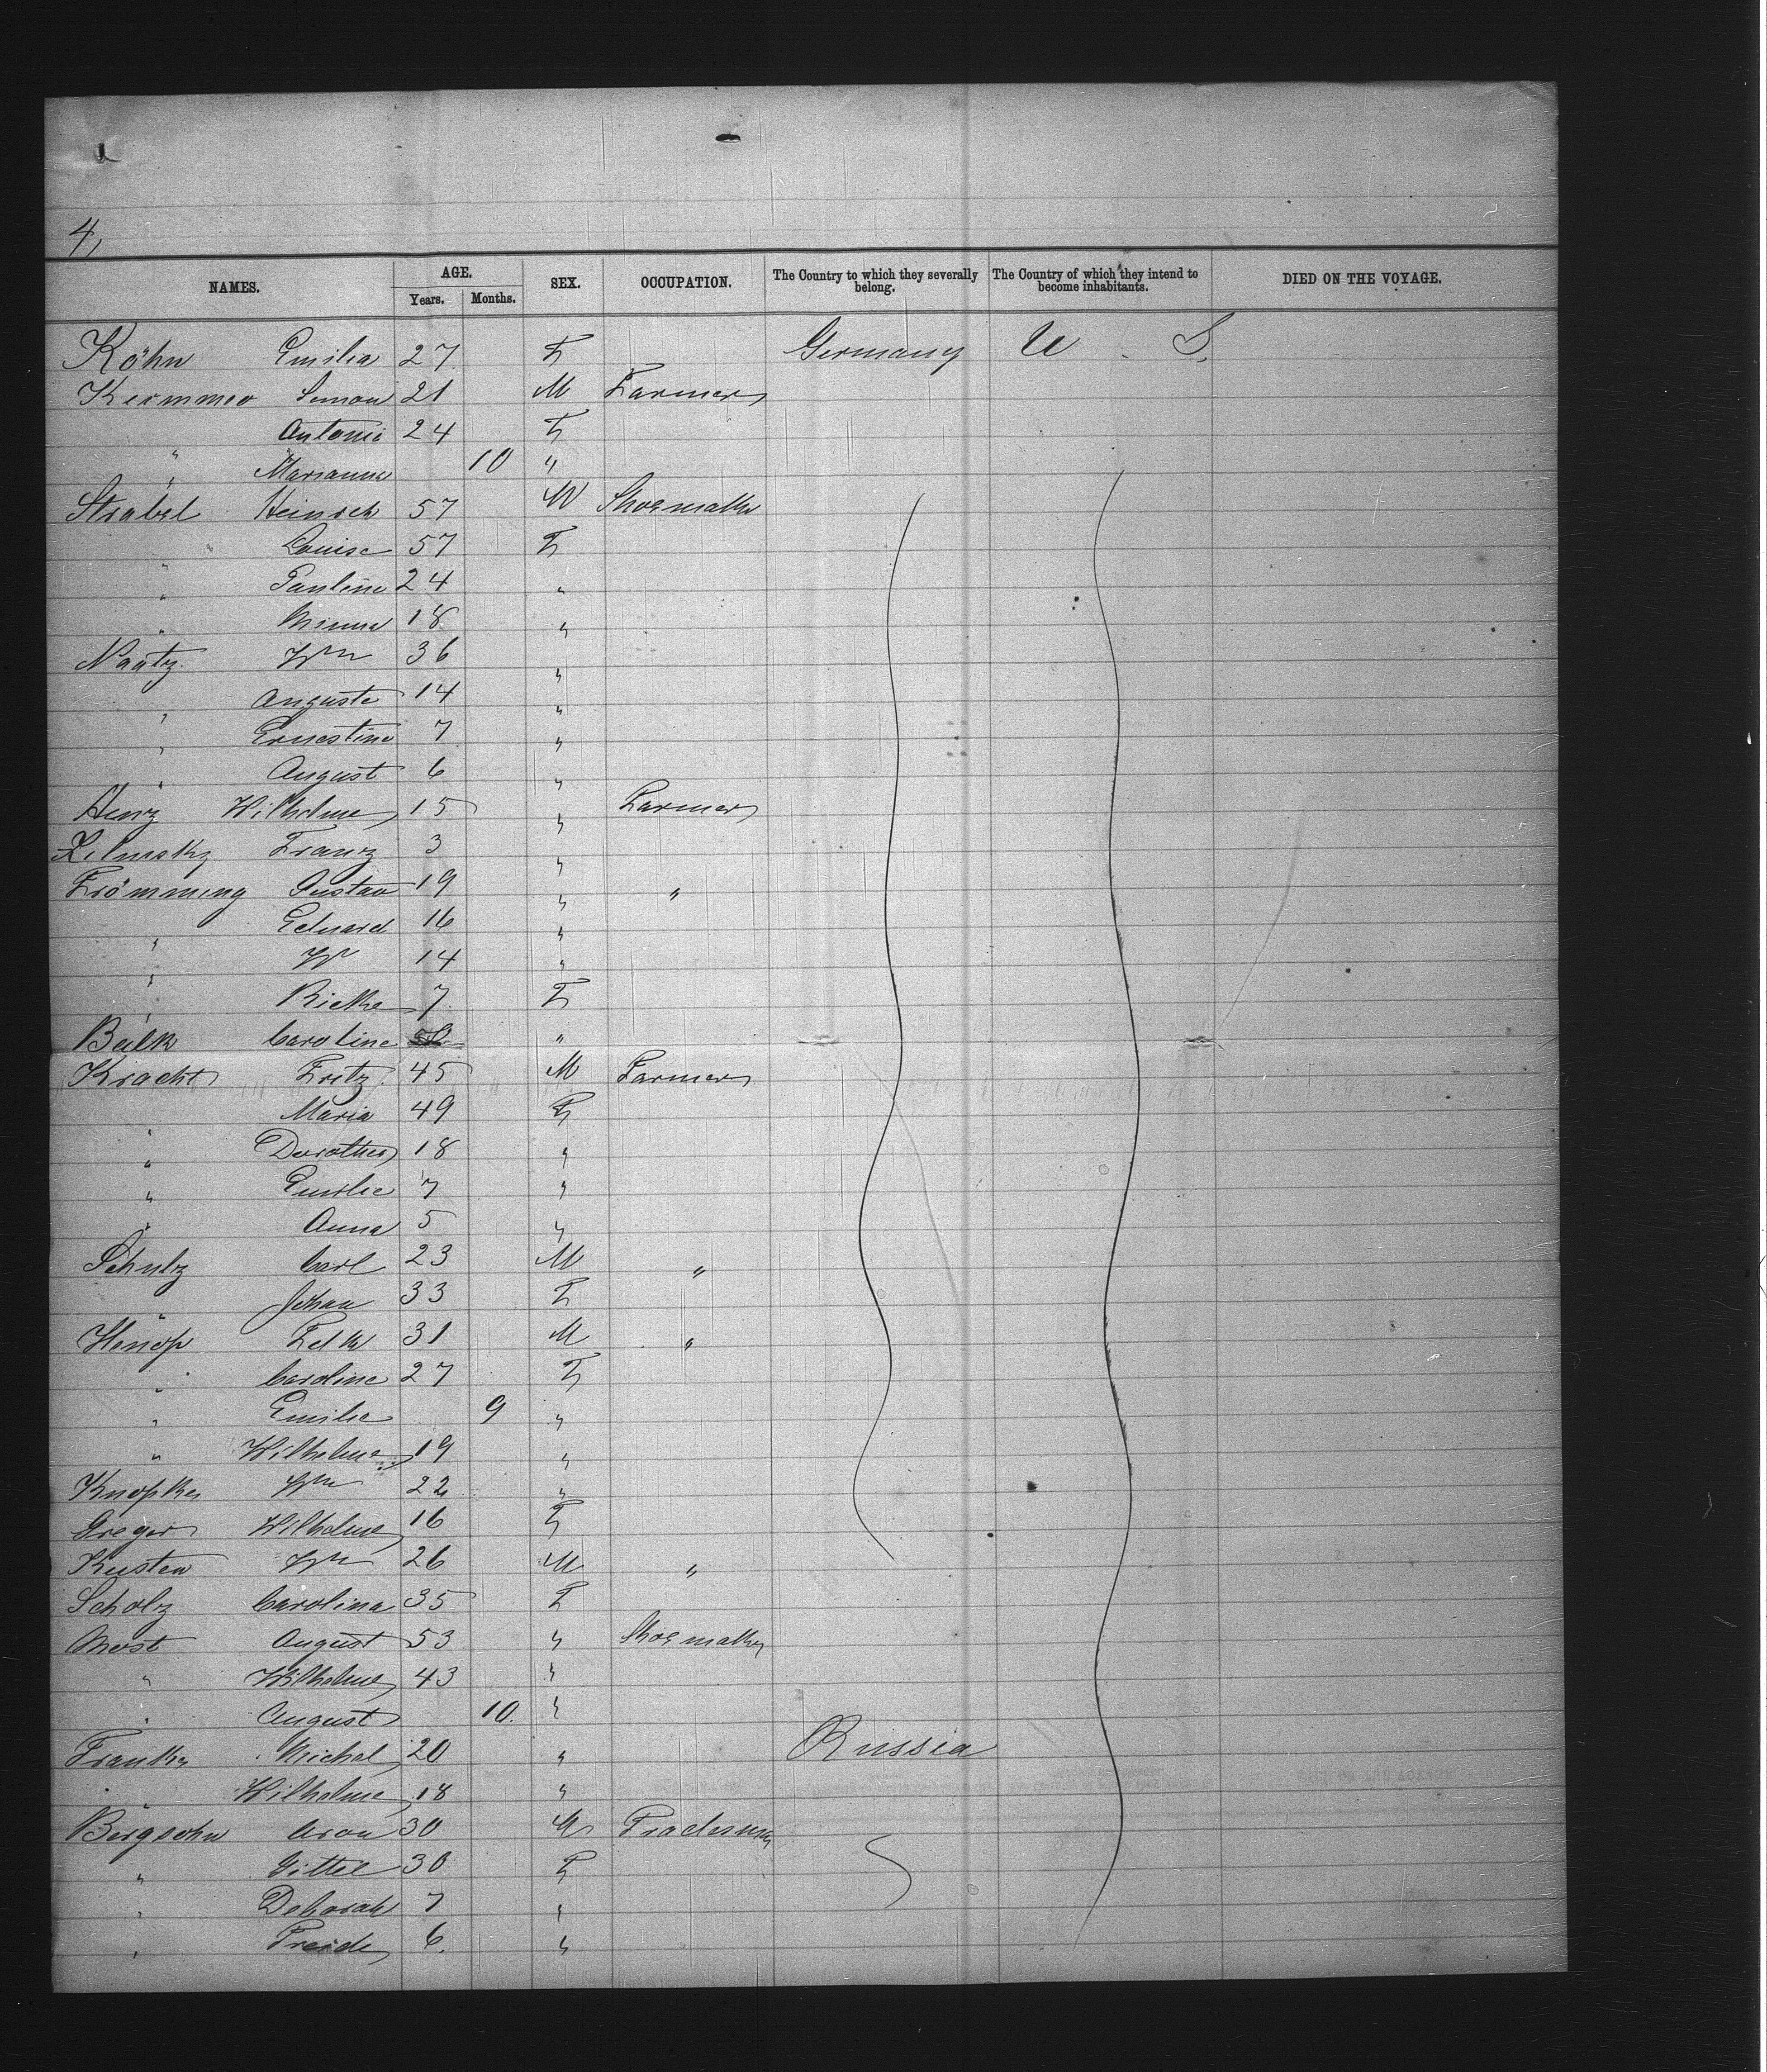 4,
NAMES. AGE. Years. Months. SEX. OCCUPATION. The Country to which they severally belong. The Country of which they intend to become inhabitants. DIED ON THE VOYAGE.
Köhn Emilia 27 F Germany U. S.
Kremmer Simon 21 M Farmer
" Antonie 24 F
" Marianna 10 "
Strabel Heinrich 57 M Shoemaker
" Louise 57 F
" Pauline 24 "
" Minna 18 "
Naatz Wm 36 "
" Auguste 14 "
" Ernestine 7 "
" August 6 "
Henz Wilhelme 15 " Farmer
Franz 3 "
Frömming Gustav 19 " "
" Eduard 16 "
" W 14 "
" Rieke 7 F
Balk Caroline "
Kracht Fritz 45 M Farmer
" Maria 49 F
" Dorothea 18 "
" Emilie 7 "
" Anna 5 "
Schulz Carl 23 M "
" Johan 33 F
Henop 31 M "
" Caroline 27 F
" Emilie 9 "
" Wilhelme 19 "
Knopke Wm 22 "
Greger Wilhelme 16 F
Kusten Wm 26 M "
Scholz Carolina 35 F
Most August 53 " Shoemaker
" Wilhelme 43 "
" August 10 "
Franke Michel 20 " Russia
" Wilhelme 18 "
Bergsohn Aron 30 M Tradesman
" Gittel 30 F
" Deborah 7 "
" Freide 6 "